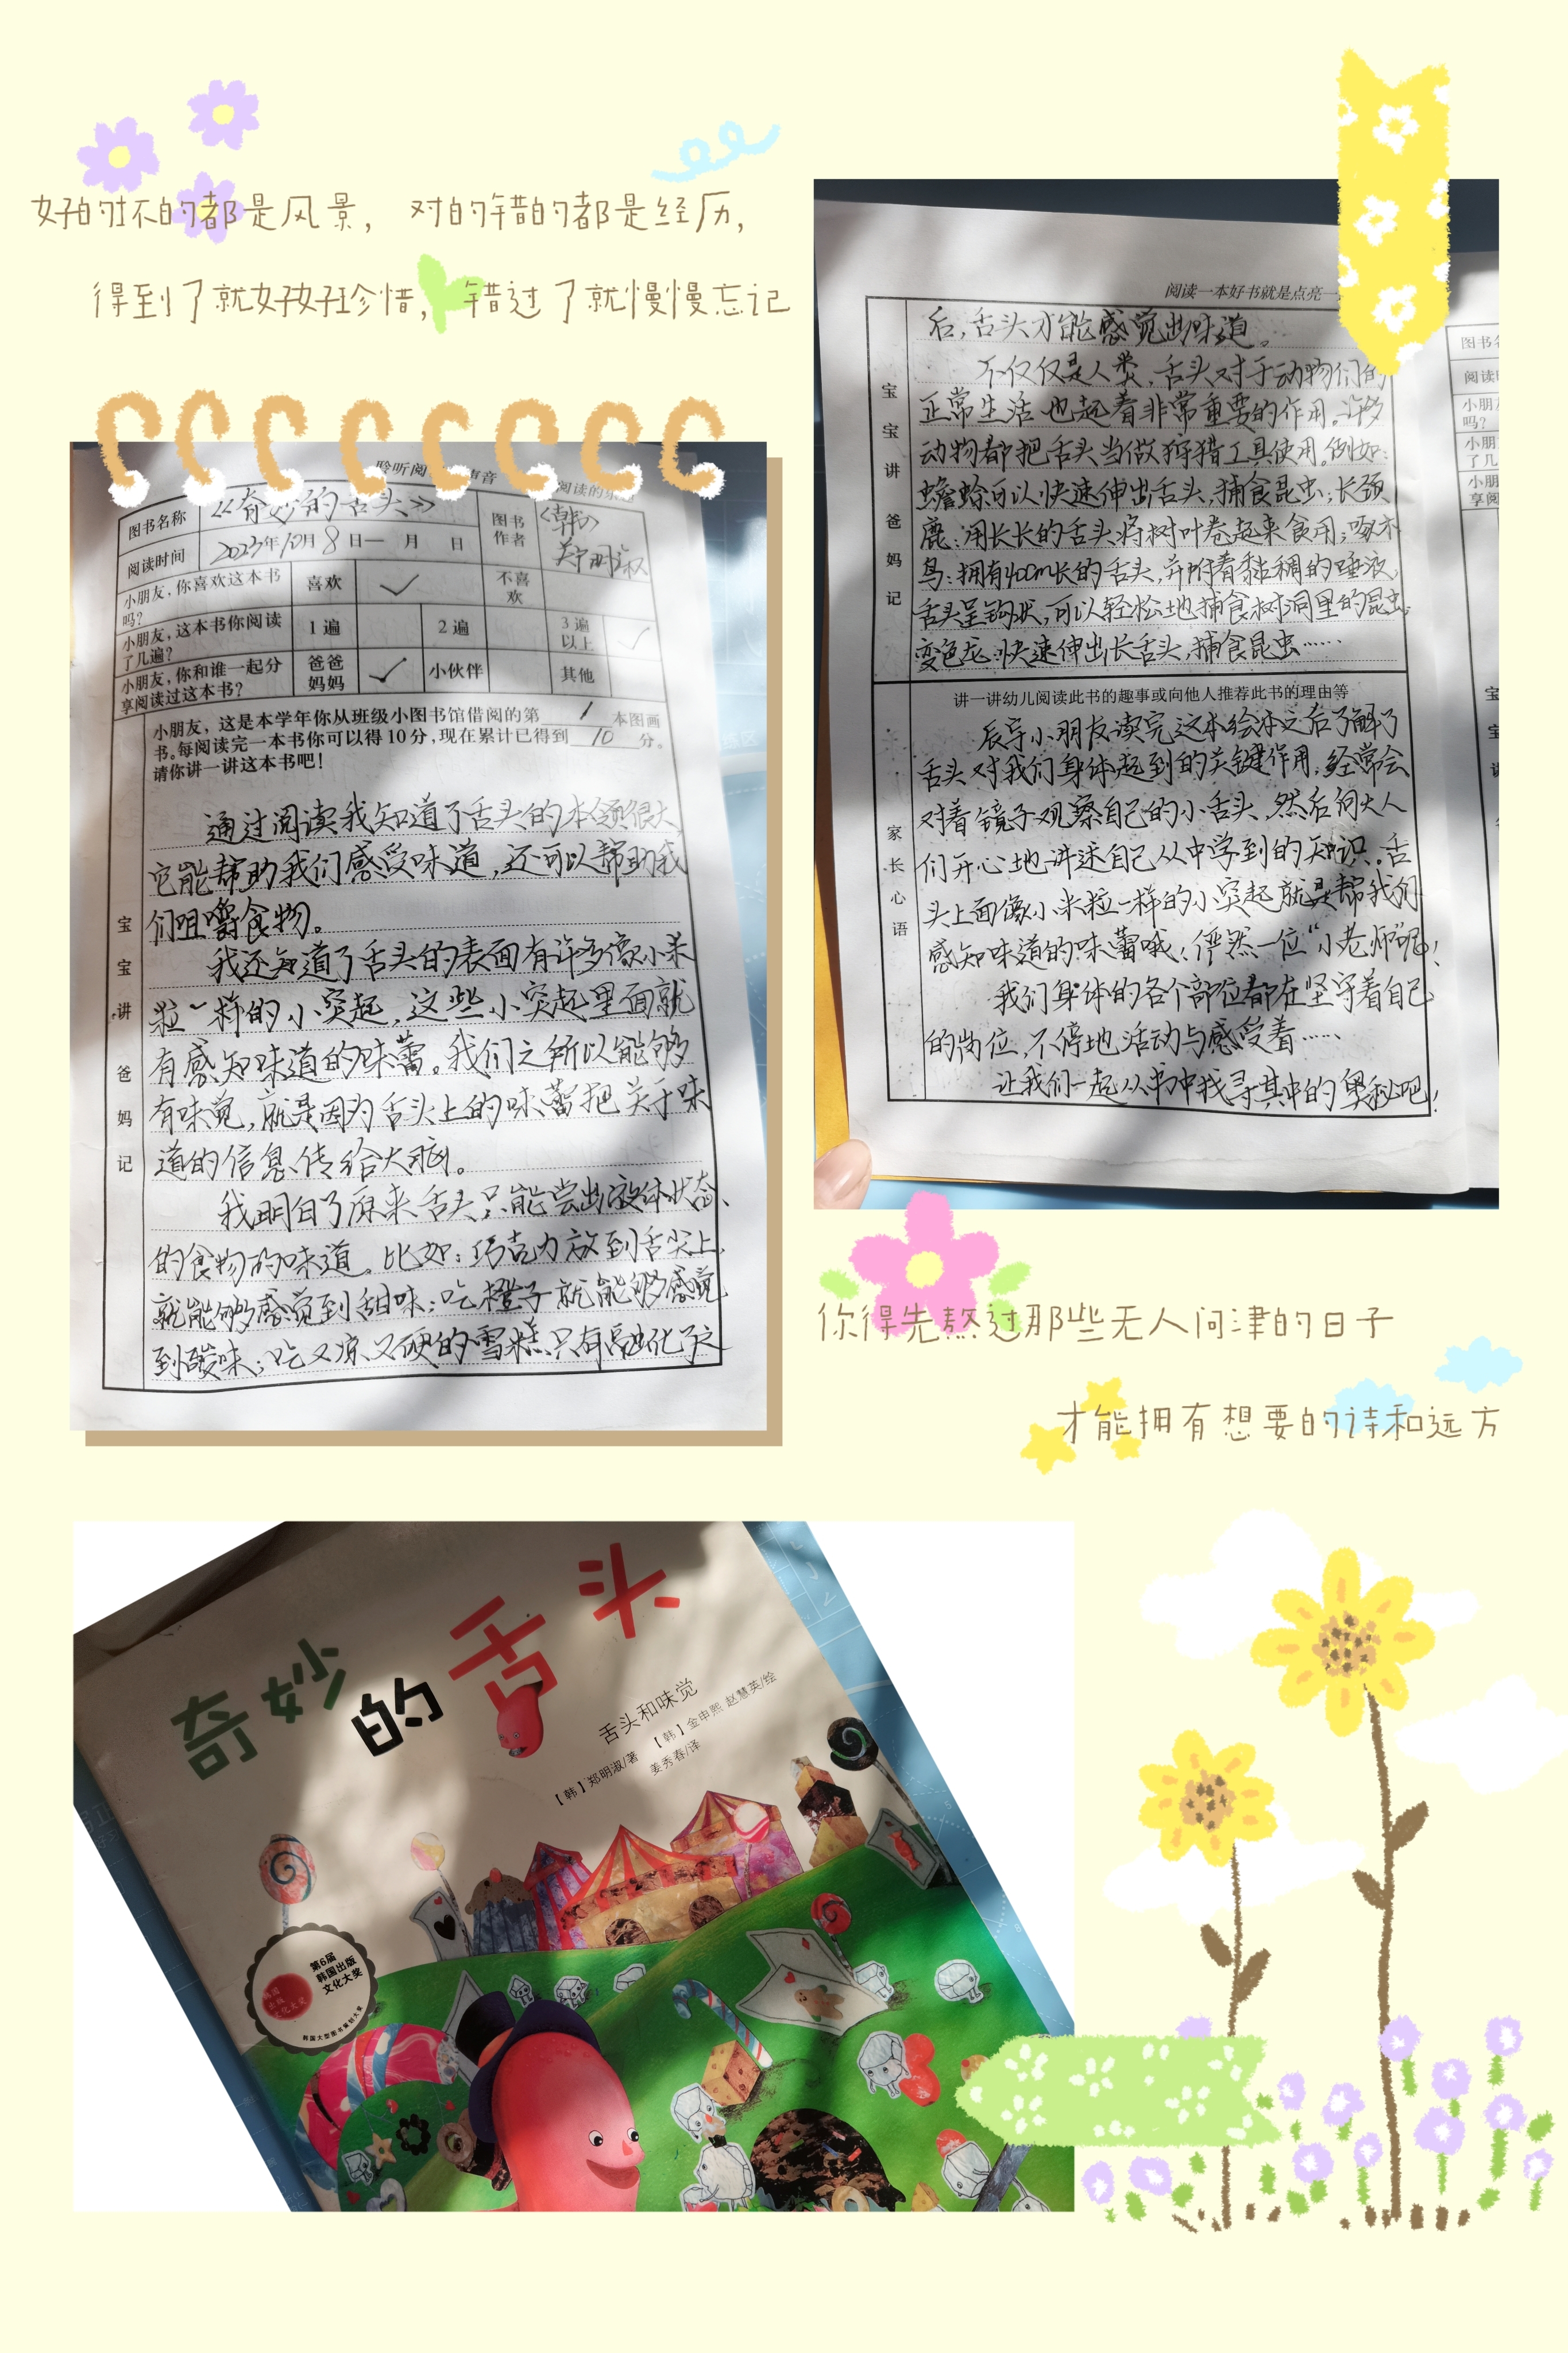 好的坏的都是风景， 对的错的都是经历，
得到了就好好珍惜， 错过了就慢慢忘记
聆听阅 声音
阅读的
图书名称 《奇妙的舌头》 图书作者 〈韩〉郑明淑
阅读时间 2023年10月8日— 月 日
小朋友，你喜欢这本书吗？ 喜欢 ✓ 不喜欢
小朋友，这本书你阅读了几遍？ 1遍 2遍 3遍以上 ✓
小朋友，你和谁一起分享阅读过这本书？ 爸爸妈妈 ✓ 小伙伴 其他
小朋友，这是本学年你从班级小图书馆借阅的第 1 本图画
书。每阅读完一本书你可以得10分，现在累计已得到 10 分。
请你讲一讲这本书吧！
宝宝讲 爸妈记
通过阅读我知道了舌头的本领很大，
它能帮助我们感受味道，还可以帮助我
们咀嚼食物。
我还知道了舌头的表面有许多像小米
粒一样的小突起，这些小突起里面就
有感知味道的味蕾。我们之所以能够
有味觉，就是因为舌头上的味蕾把关于味
道的信息传给大脑。
我明白了原来舌头只能尝出液体状态
的食物的味道。比如：巧克力放到舌尖上，
就能够感觉到甜味；吃橙子就能够感觉
到酸味；吃又凉又硬的雪糕只有融化了之
阅读一本好书就是点亮一
宝宝讲 爸妈记
后，舌头才能感觉出味道。
不仅仅是人类，舌头对于动物们的
正常生活也起着非常重要的作用。许多
动物都把舌头当做狩猎工具使用。例如：
蟾蜍可以快速伸出舌头，捕食昆虫；长颈
鹿：用长长的舌头将树叶卷起来食用；啄木
鸟：拥有40cm长的舌头，并附着黏稠的唾液，
舌头呈钩状，可以轻松地捕食树洞里的昆虫。
变色龙：快速伸出长舌头，捕食昆虫……
讲一讲幼儿阅读此书的趣事或向他人推荐此书的理由等
家长心语
辰宇小朋友读完这本绘本之后了解了
舌头对我们身体起到的关键作用，经常会
对着镜子观察自己的小舌头，然后向大人
们开心地讲述自己从中学到的知识。舌
头上面像小米粒一样的小突起就是帮我们
感知味道的味蕾哦；俨然一位“小老师”呢！
我们身体的各个部位都在坚守着自己
的岗位，不停地活动与感受着……
让我们一起从书中找寻其中的奥秘吧！
图书名
阅读时
小朋友
吗？
小朋
了几
小朋
享阅
你得先熬过那些无人问津的日子
才能拥有想要的诗和远方
奇妙的舌头
舌头和味觉
【韩】郑明淑/著 【韩】金申熙 赵慧英/绘
姜秀春/译
第6届
韩国出版
文化大奖
韩国大型图书策划大奖